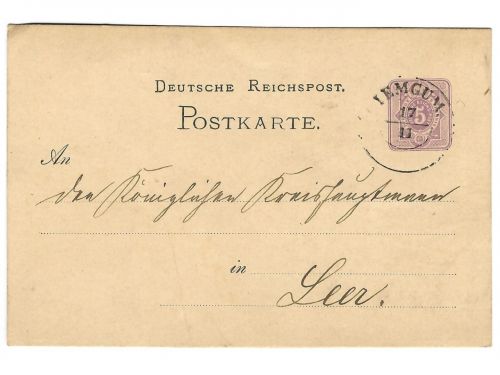 DEUTSCHE REICHSPOST.
POSTKARTE.
JEMGUM
17
11
5
An
den Königlichen Kreishauptmann
in
Leer.